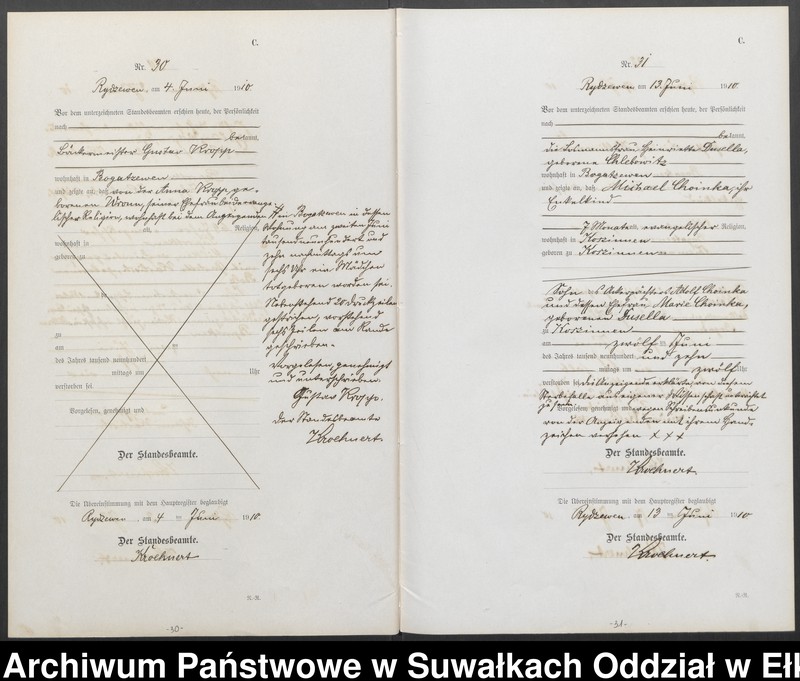 C.
Nr. 30
Rydzewen am 4. Juni 1910
Vor dem unterzeichneten Standesbeamten erschien heute, der Persönlichkeit
nach
bekannt,
Bäckermeister Gustav Kropp
wohnhaft in Bogatzewen
und zeigte an, daß von der Anna Kropp ge-
borenen Wronn, seiner Ehefrau beide evange-
lischer Religion, wohnhaft bei dem Anzeigenden
alt, Religion,
wohnhaft in
geboren zu
zu
am ten
des Jahres tausend neunhundert
mittags um Uhr
verstorben sei.
Vorgelesen, genehmigt und
zu Bogatzewen in dessen
Wohnung am zweiten Juni
tausendneunhundert und
zehn nachmittags um
sechs Uhr ein Mädchen
totgeboren worden sei.
Nebenstehend 20 Druckzeilen
gestrichen, vorstehend
sechs Zeilen am Rande
geschrieben.
Vorgelesen, genehmigt
und unterschrieben.
Gustav Kropp.
Der Standesbeamte
Kroehnert
Der Standesbeamte.
Die Übereinstimmung mit dem Hauptregister beglaubigt
Rydzewen, am 4 ten Juni 1910.
Der Standesbeamte.
Kroehnert
R.-R.
-30-
C.
Nr. 31
Rydzewen am 13. Juni 1910.
Vor dem unterzeichneten Standesbeamten erschien heute, der Persönlichkeit
nach
bekannt,
die Losmannsfrau Henriette Dusella,
geborene Chlebowitz
wohnhaft in Bogatzewen
und zeigte an, daß Michael Choinka, ihr
Enkelkind
7 Monate alt, evangelischer Religion,
wohnhaft in Kossinnen
geboren zu Kossinnen
Sohn des Ackerpächters Adolf Choinka
und dessen Ehefrau Marie Choinka,
geborenen Dusella
zu Kossinnen
am zwölf ten Juni
des Jahres tausend neunhundert und zehn
mittags um zwölf Uhr
verstorben sei. Die Anzeigende erklärte, von diesem
Sterbefalle aus eigener Wissenschaft unterrichtet
zu sein.
Vorgelesen, genehmigt und wegen Schreibensunkunde
von der Anzeigenden mit ihrem Hand-
zeichen versehen x x x
Der Standesbeamte.
Kroehnert
Die Übereinstimmung mit dem Hauptregister beglaubigt
Rydzewen am 13 ten Juni 1910
Der Standesbeamte.
Kroehnert.
R.-R.
-31-
Archiwum Państwowe w Suwałkach Oddział w Ełk